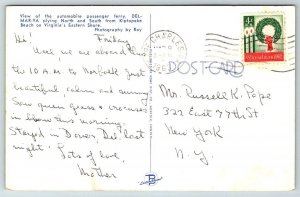 View of the automobile passenger ferry, DEL-
MAR-VA plying North and South from Kiptopeke
Beach on Virginia's Eastern Shore.
Photography by Roy
Friday
Hi!
Well we are aboard this
the 10 A.M to Norfolk just
beautiful calm and sunny
Saw green grass & crocuses
in bloom this morning.
Stayed in Dover, Del. last
night! Lots of love,
Mother
CHARLES
POSTCARD
4¢
Mr. Russell K. Pope
322 East 77th St
New York
N.Y.